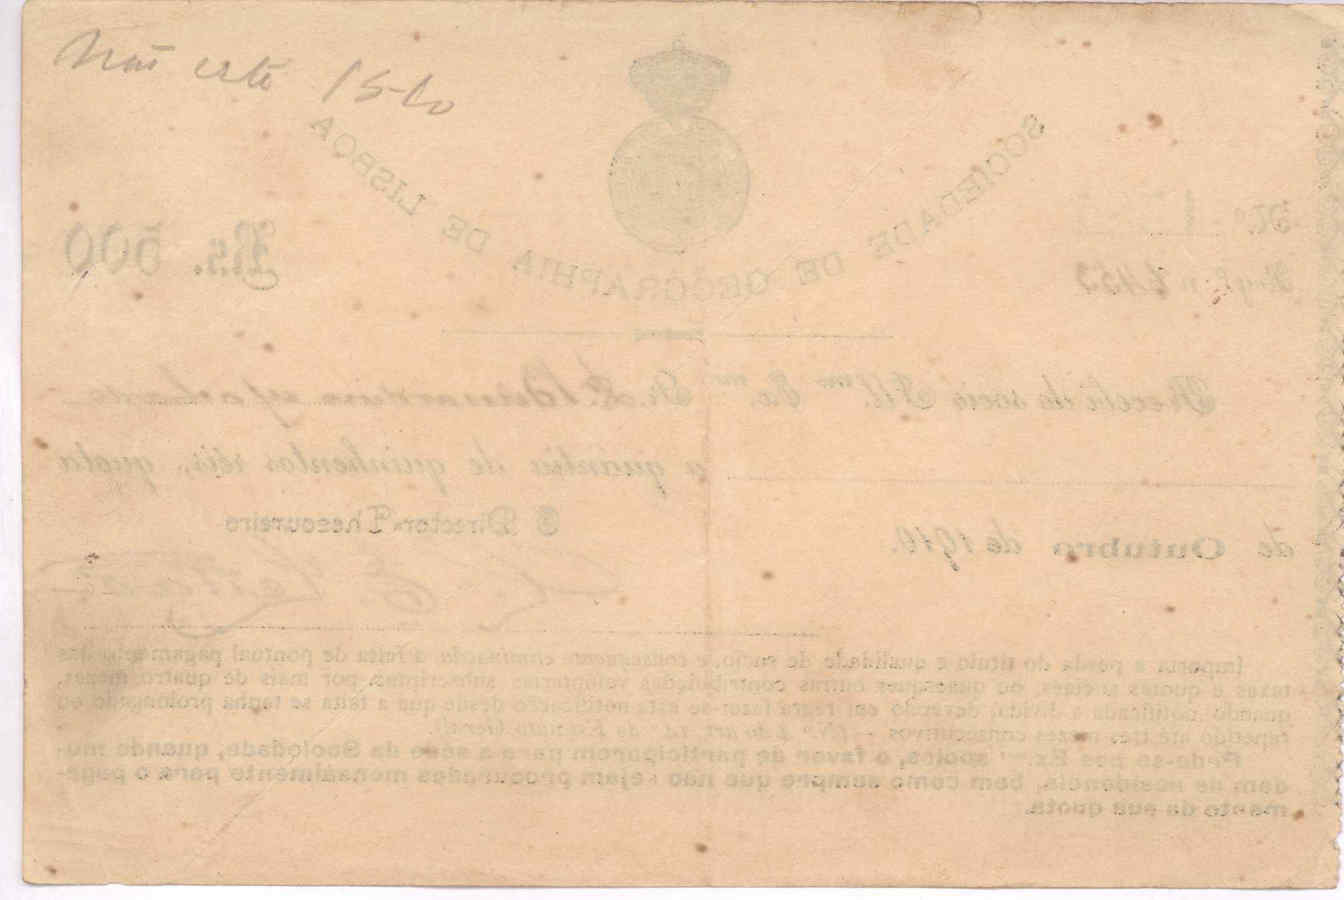 Não está 15-10
SOCIEDADE DE GEOGRAPHIA DE LISBOA
N.º
Rs. 500
Recebi do socio Ill.mo Ex.mo Sr.
a quantia de quinhentos réis, quota
de Outubro de 1910.
O Director-Thesoureiro
Importa a perda do titulo e qualidade de socio, e consequente eliminação a falta de pontual pagamento das
taxas e quotas sociaes, ou quaesquer outras contribuições voluntarias subscriptas, por mais de quatro mezes,
quando notificada a divida, devendo em regra fazer-se esta notificação desde que a falta se tenha prolongado ou
repetido até tres mezes consecutivos
Pede-se aos Ex.mos socios, o favor de participarem para a séde da Sociedade, quando mu-
dem de residencia, bem como sempre que não sejam procurados mensalmente para o paga-
mento da sua quota.